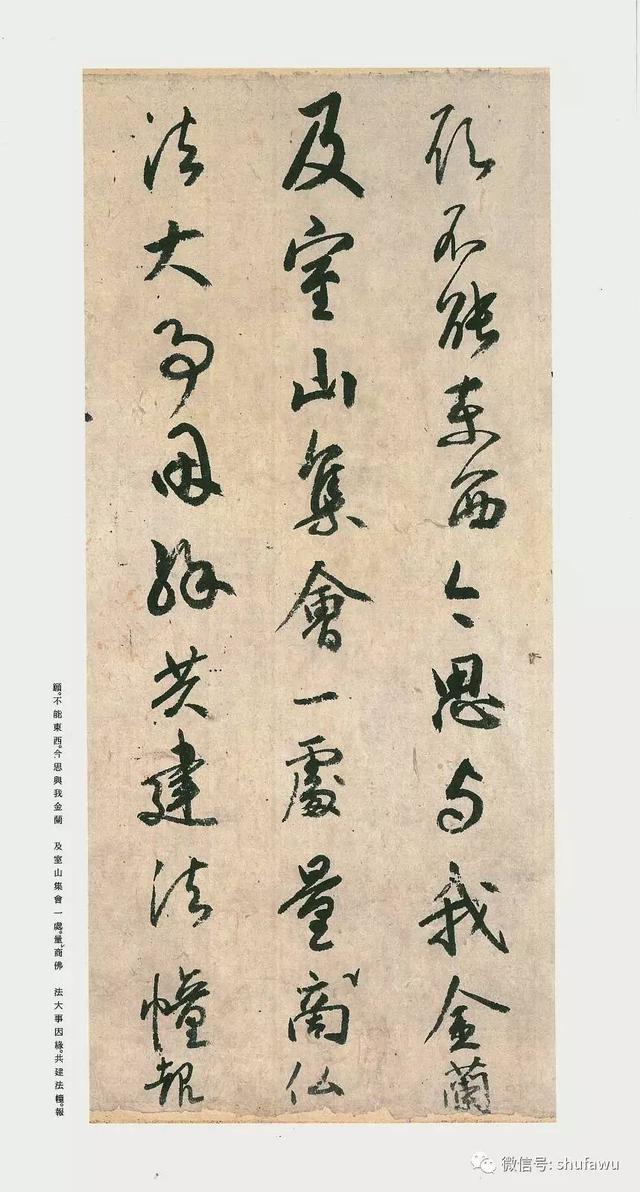 願不能東西今思与我金蘭
及室山集會一處量商仏
法大事因緣共建法幢報
願。不能東西。今思與我金蘭 及室山集會一處。量商佛 法大事因緣。共建法幢。報
微信号: shufawu